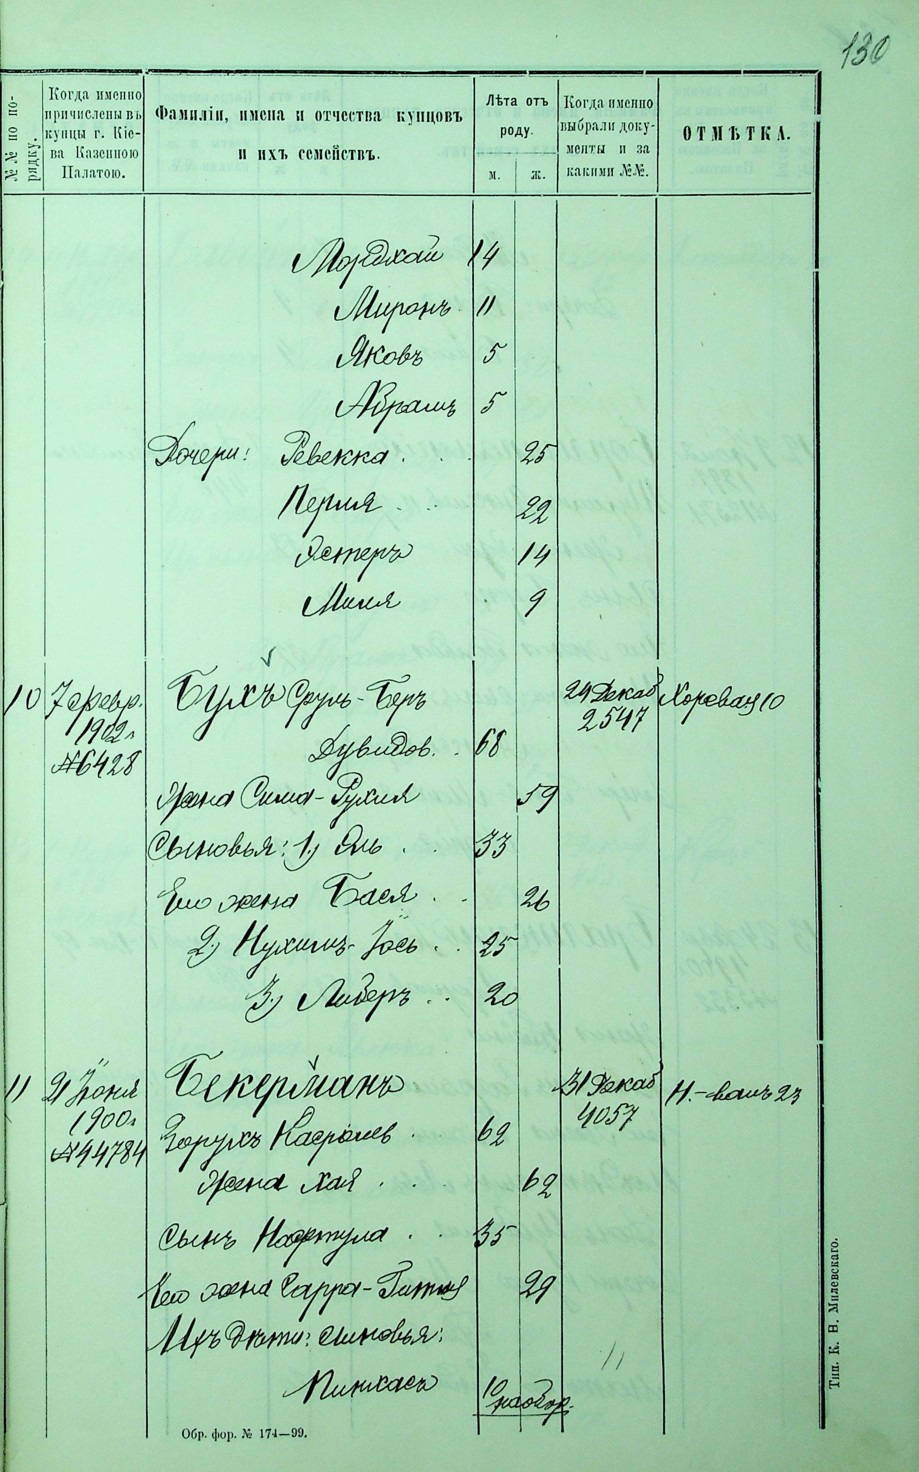 130
№№ по по-
рядку.
Когда именно
причислены въ
купцы г. Кіе-
ва Казенною
Палатою.
Фамиліи, имена и отчества купцовъ
и ихъ семействъ.
Лѣта отъ
роду.
м. ж.
Когда именно
выбрали доку-
менты и за
какими №№.
ОТМѢТКА.
Мордхай 14
Миронъ 11
Яковъ 5
Абрамъ 5
Дочери: Ревекка . . 25
Перля . . 22
Эстеръ 14
Миля 9
10 7 февр. Бухъ Сруль-Беръ 24 Декаб 10
1902 г. 2547
№6428 Дувидов. . 68
Жена Сима-Рухля 59
Сыновья: 1) Эль . . 33
Его жена Бася . . 26
2) Нухимъ-Іось . . 25
3) Либеръ . . 20
11 21 Іюня Бекерманъ 31 Декаб Н.-валъ 23
1900 г. 4057
№44784 Борухъ . 62
Жена Хая . . . 62
Сынъ Нафтула . . 35
Его жена Сарра-Гитля 29
Ихъ дѣти: сыновья:
Пинхасъ 10
наобор.
Обр. фор. № 174—99.
Тип. К. Н. Милевскаго.